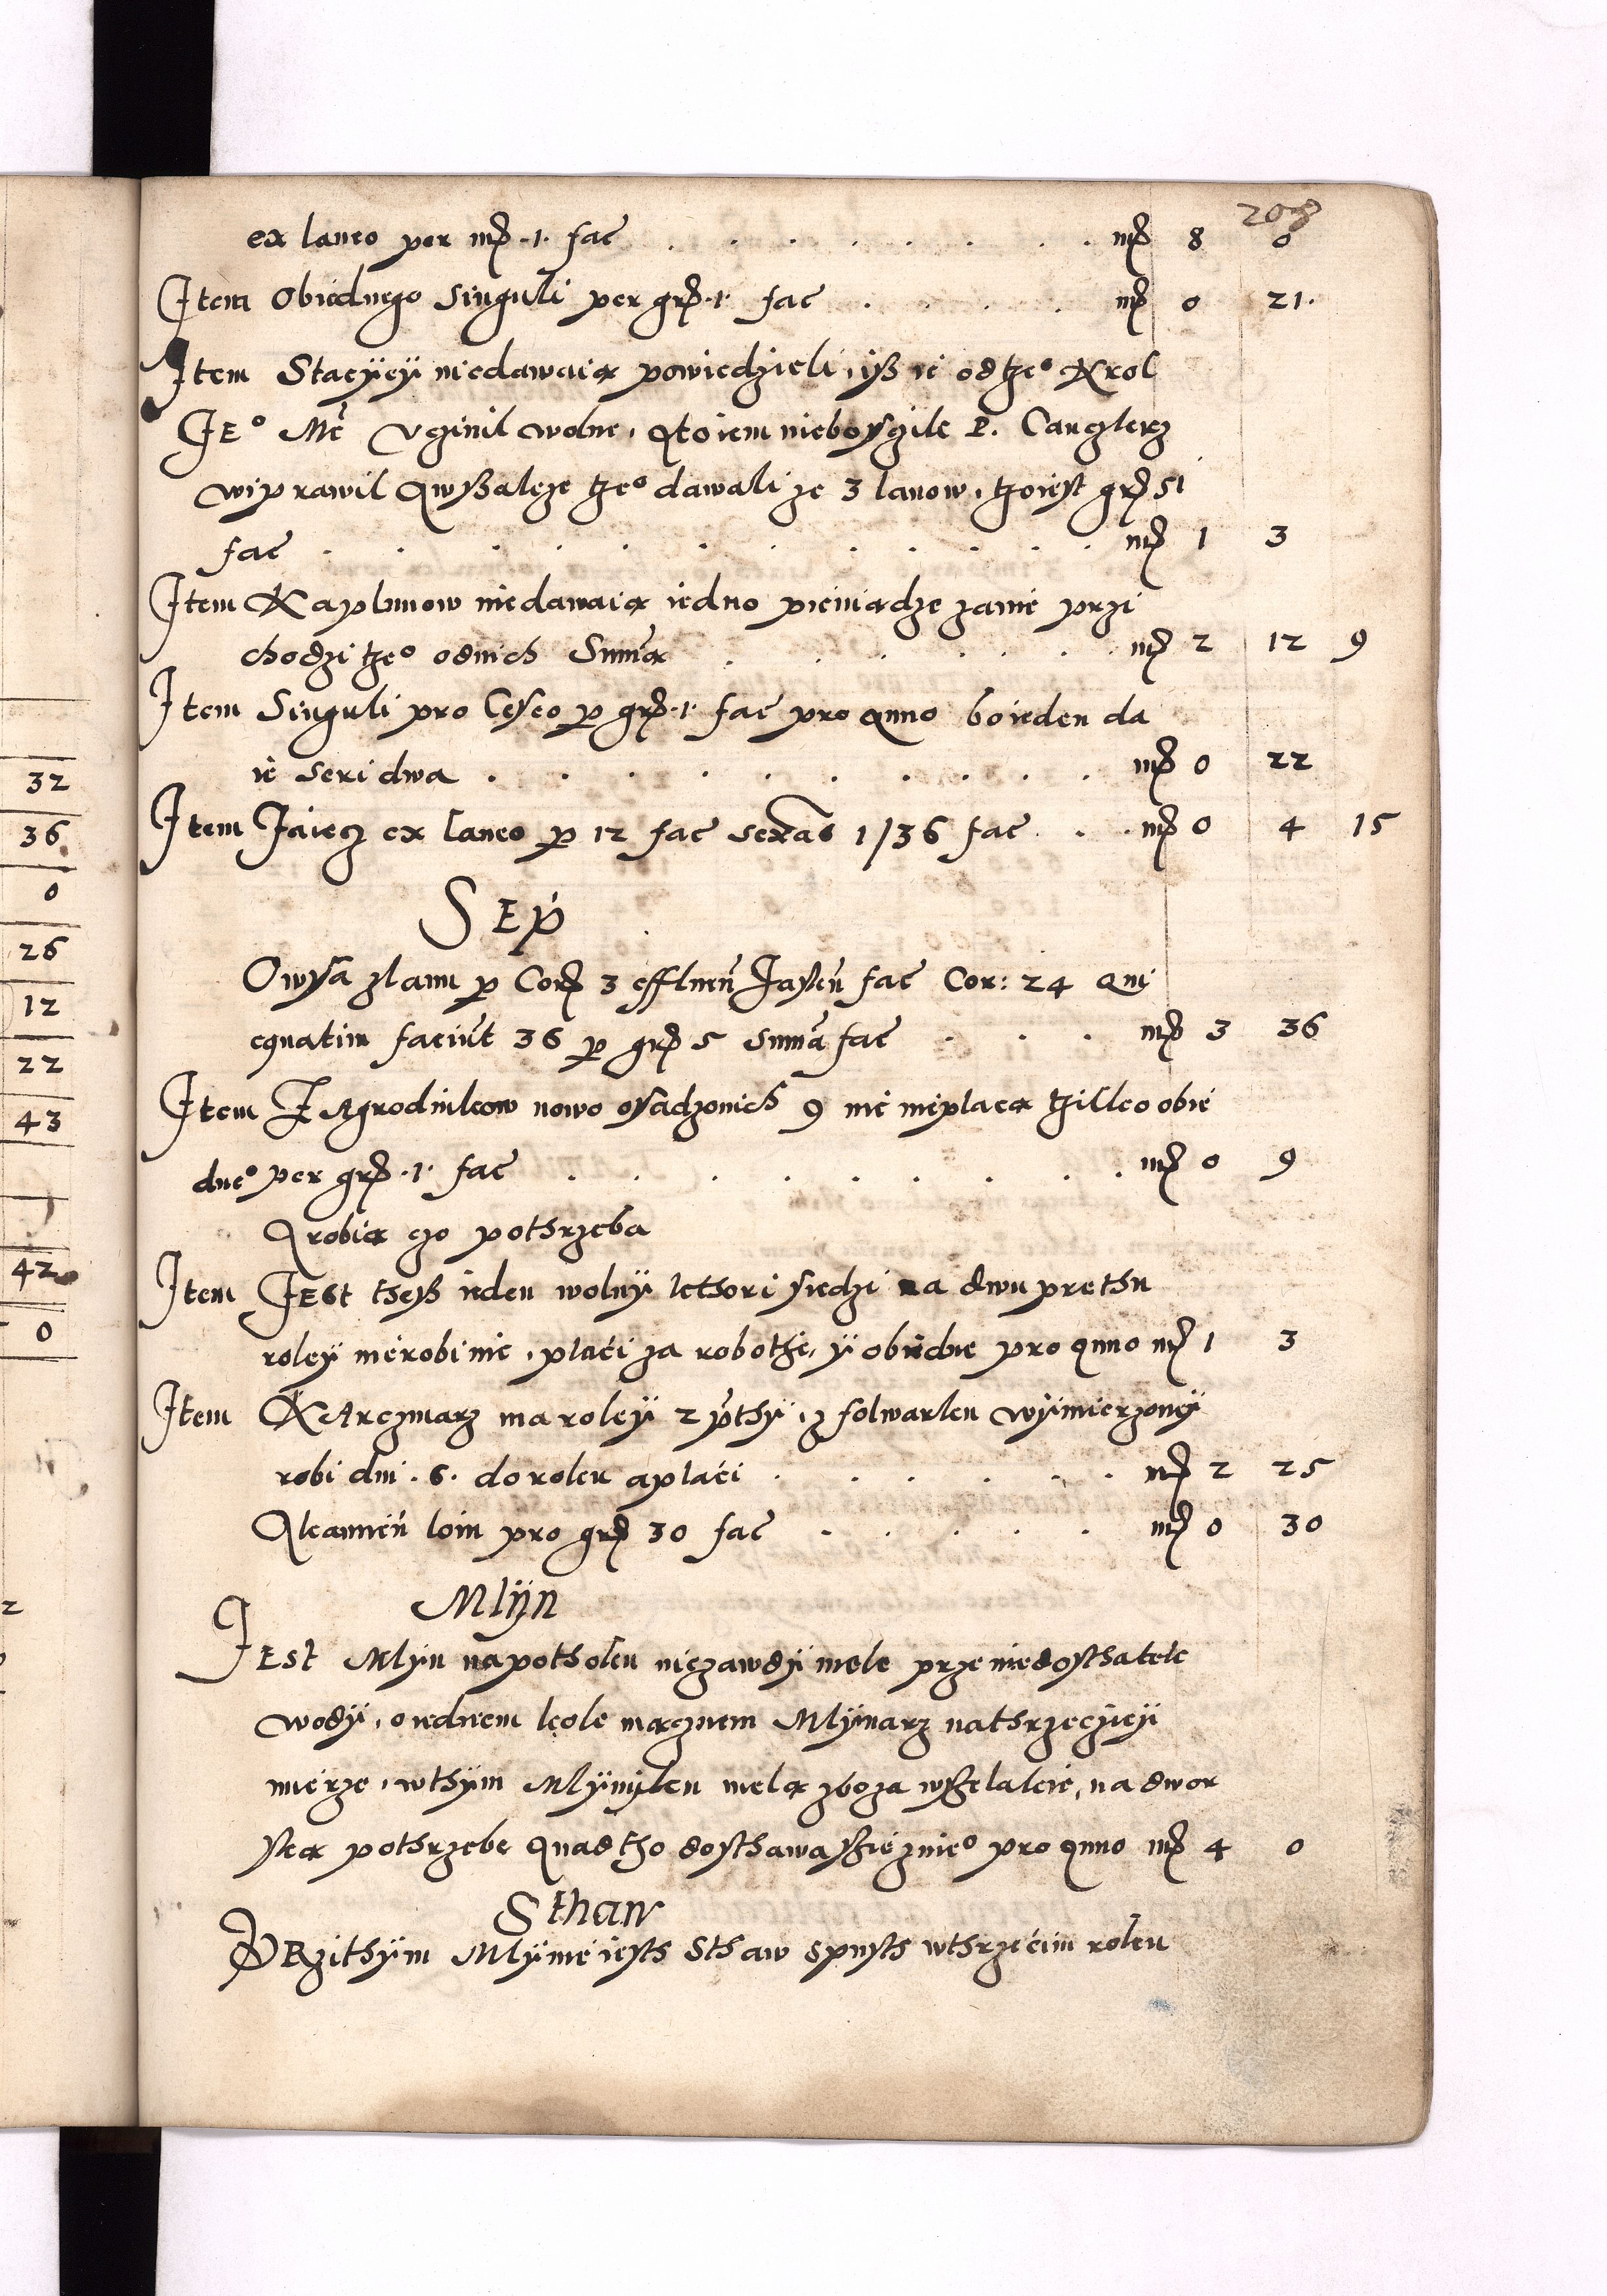 208
ex laneo per mṛ .1. fac̄ . . . . . . . . mṛ 8 0
Item Obiednego Singuli per gṛ .1. fac . . . . mṛ 0 21.
Item Stacÿcÿ niedawaią powiedzieli, iß ie od tze° Krol
JE° Mć Vczinil wolne, A to iem niebosczik P. Canczlerz
wiprawil A wßakze tze° dawali ze 3 lanow, tho iest gṛ 51
fac̄ . . . . . . . . . . . . mṛ 1 3
Item Kaplunow niedawaią iedno pieniądze zanie przi
chodzi tze° odnich Sum̄a . . . . . . . mṛ 2 12 9
Item Singuli pro Caseo ꝑ gṛ .1. fac̄ pro anno bo ieden da
ie seri dwa . . . . . . . . . mṛ 0 22
Item Jaiecz ex laneo ꝑ 12 fac̄ sexas 1/36 fac̄ . . . mṛ 0 4 15
SEp
Owsa zlanu ꝑ Corṛ 3 effluen̄ fac̄ Cor: 24 Qui
equatim faciūt 36 ꝑ gṛ 5 sum̄a fac̄ . . . mṛ 3 36
Item ZAgrodnikow nowo osadzonich 9 nie nieplacą tzilko obie
dne° per gṛ .1. fac̄ . . . . . . . . . mṛ 0 9
A robią czo pothrzeba
Item JESt theß ieden wolnÿ kthori siedzi na dwu prethu
roleÿ nierobi nic, placi za robothe, ÿ obiedne pro anno mṛ 1 3
Item KArczmarz ma roleÿ 2 p̄thÿ, z folwarku wÿmierzoneÿ
robi dni .6. do roku a placi . . . . . . mṛ 2 25
A kamień loiu pro gṛ 30 fac̄ . . . . . mṛ 0 30
Mlÿn
JESt Mlÿn na potholku nie zawdÿ miele prze niedosthatek
wodÿ, o iednem kole mącznem Mlÿnarz na thrzecieÿ
mierze, w thÿm Mlÿnisku melą zboza wßelakie, na dwor
ską pothrzebe A nad tho dosthawa ßie znie° pro anno mṛ 4 0
Sthaw
PRzi thÿm Mlÿnie iesth Sthaw spusth w thrzecim roku
32
36
0
26
12
22
43
42
0